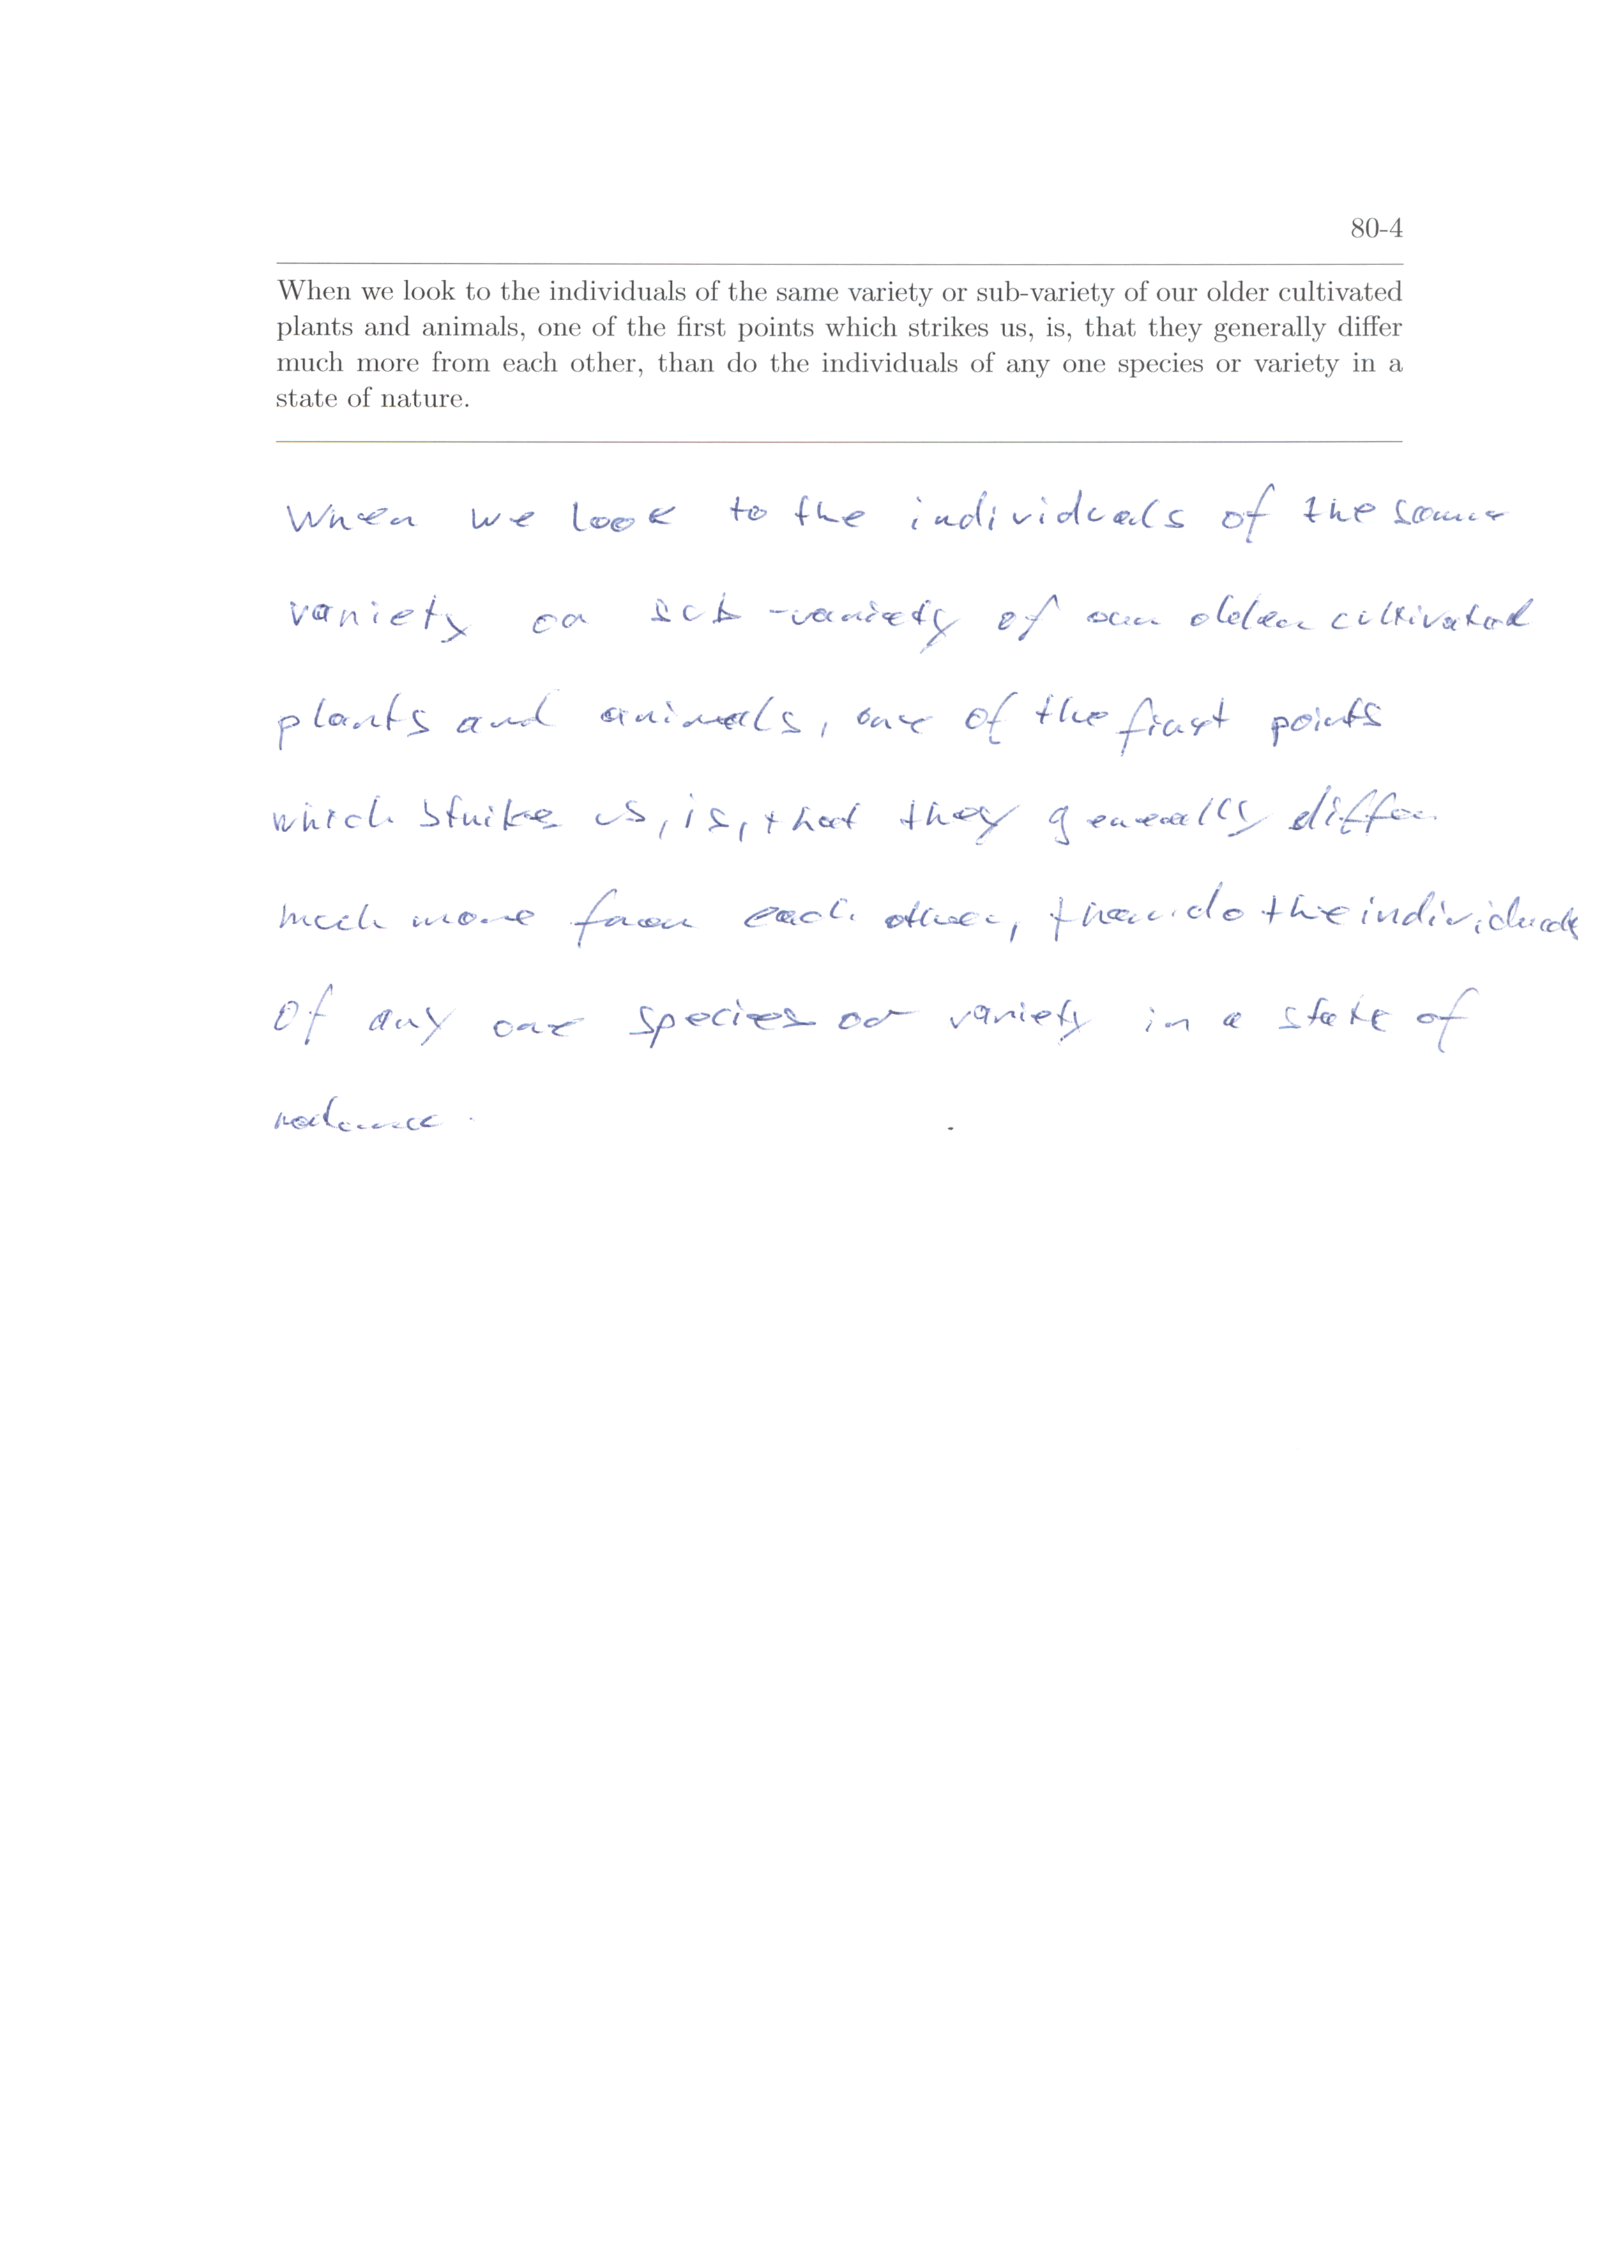 80-4
When we look to the individuals of the same variety or sub-variety of our older cultivated
plants and animals, one of the first points which strikes us, is, that they generally differ
much more from each other, than do the individuals of any one species or variety in a
state of nature.
When we look to the individuals of the same
variety or sub-variety of our older cultivated
plants and animals, one of the first points
which strikes us, is, that they generally differ
much more from each other, than do the individuals
of any one species or variety in a state of
nature.